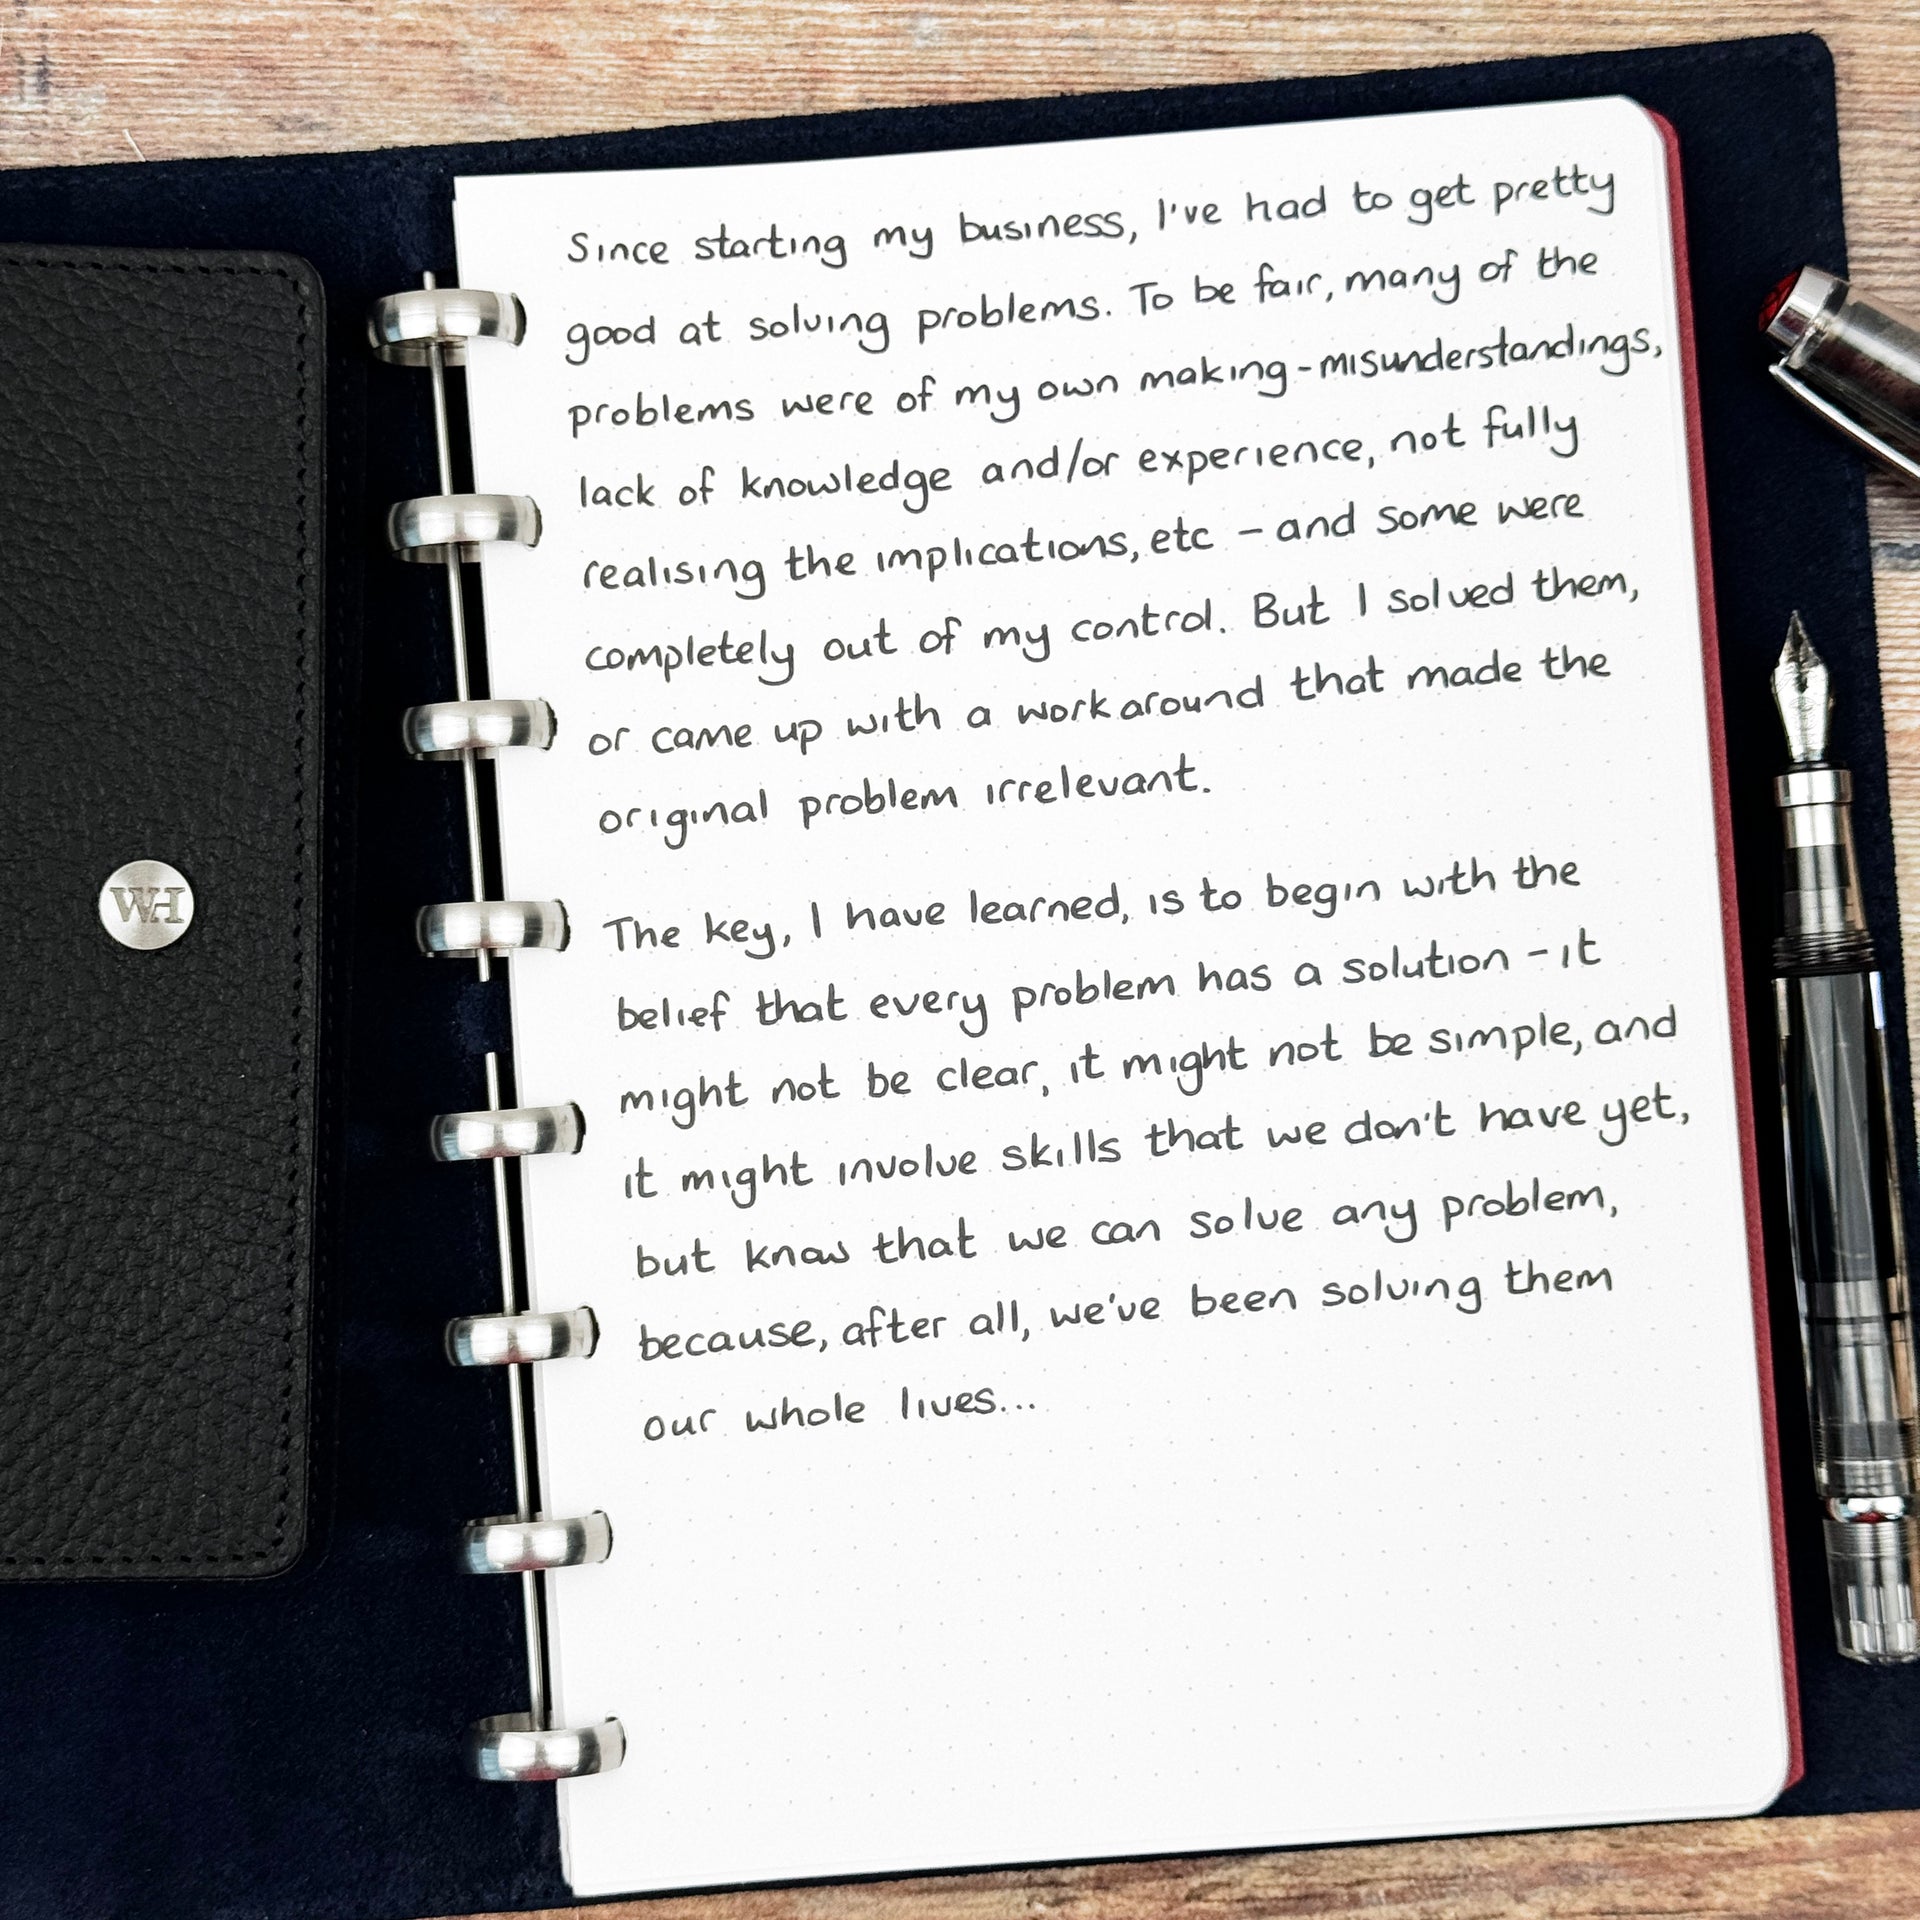 Since starting my business, I've had to get pretty
good at solving problems. To be fair, many of the
problems were of my own making - misunderstandings,
lack of knowledge and/or experience, not fully
realising the implications, etc - and some were
completely out of my control. But I solved them,
or came up with a workaround that made the
original problem irrelevant.
The key, I have learned, is to begin with the
belief that every problem has a solution - it
might not be clear, it might not be simple, and
it might involve skills that we don't have yet,
but know that we can solve any problem,
because, after all, we've been solving them
our whole lives...
WH